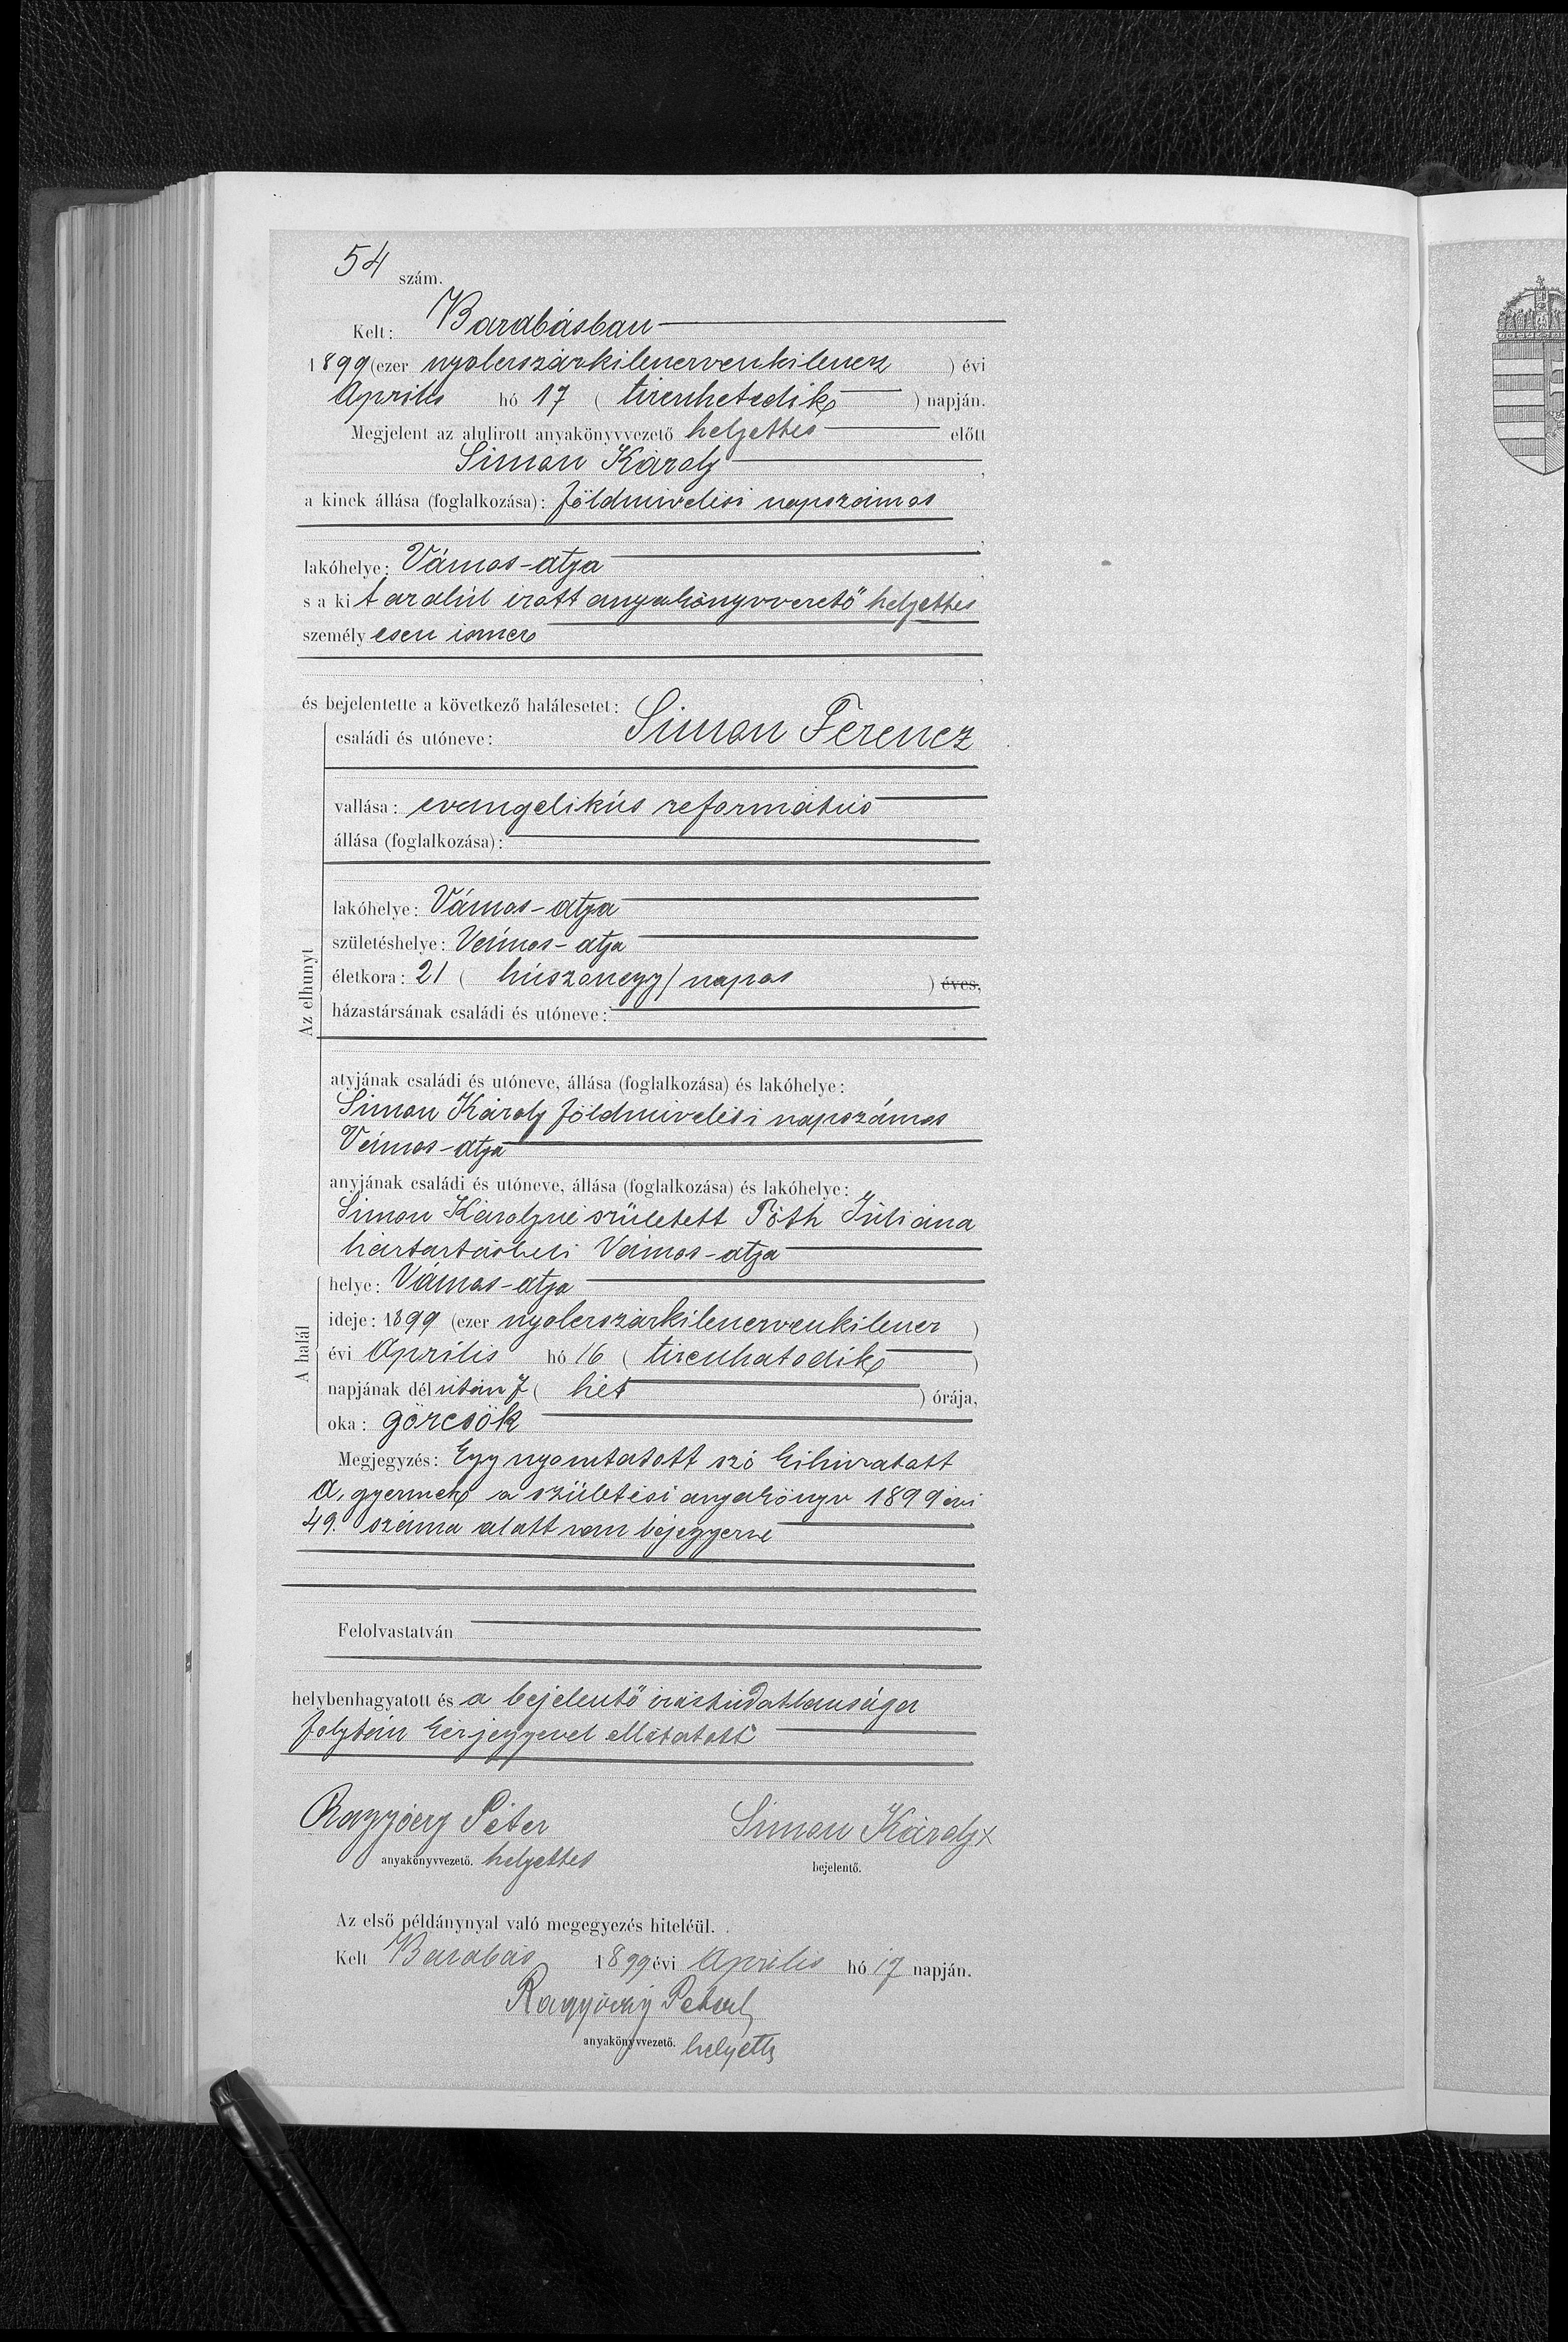 54 szám.
Kelt: Barabásban
1899 (ezer nyolczszázkilenczvenkilencz ) évi
Április hó 17 ( tizenhetedik ) napján.
Megjelent az alulirott anyakönyvvezető helyettes előtt
Simon Károly ,
a kinek állása (foglalkozása): földmivelési napszámos
,
lakóhelye: Vámos-atya ,
s a kit az alúl irott anyakönyvvezető helyettes
személyesen ismer
,
és bejelentette a következő halálesetet:
családi és utóneve: Simon Ferencz
vallása: evangelikús reformátús
állása (foglalkozása):
Az elhunyt
lakóhelye: Vámos-atya
születéshelye: Vámos-atya
életkora: 21 ( húszonegy) napos ) éves,
házastársának családi és utóneve:
atyjának családi és utóneve, állása (foglalkozása) és lakóhelye:
Simon Károly földmivelési napszámos
Vámos-atya
anyjának családi és utóneve, állása (foglalkozása) és lakóhelye:
Simon Károlyné született Tóth Júliána
háztartásbeli Vámos-atya
A halál
helye: Vámos-atya
ideje: 1899 (ezer nyolczszázkilenczvenkilencz )
évi Április hó 16 ( tizenhatodik )
napjának délután 7 ( hét ) órája,
oka: görcsök
Megjegyzés: Egy nyomtatott szó kihúzatott
A, gyermek a születési anyakönyv 1899 évi
49. száma alatt van bejegyezve
Felolvastatván
helybenhagyatott és a bejelentő irástudatlansága
folytán kézjegyével ellátatott
Péter Simon Károly x
anyakönyvvezető. helyettes bejelentő.
Az első példánynyal való megegyezés hiteléül.
Kelt Barabás 1899 évi Április hó 17 napján.
anyakönyvvezető. helyettes